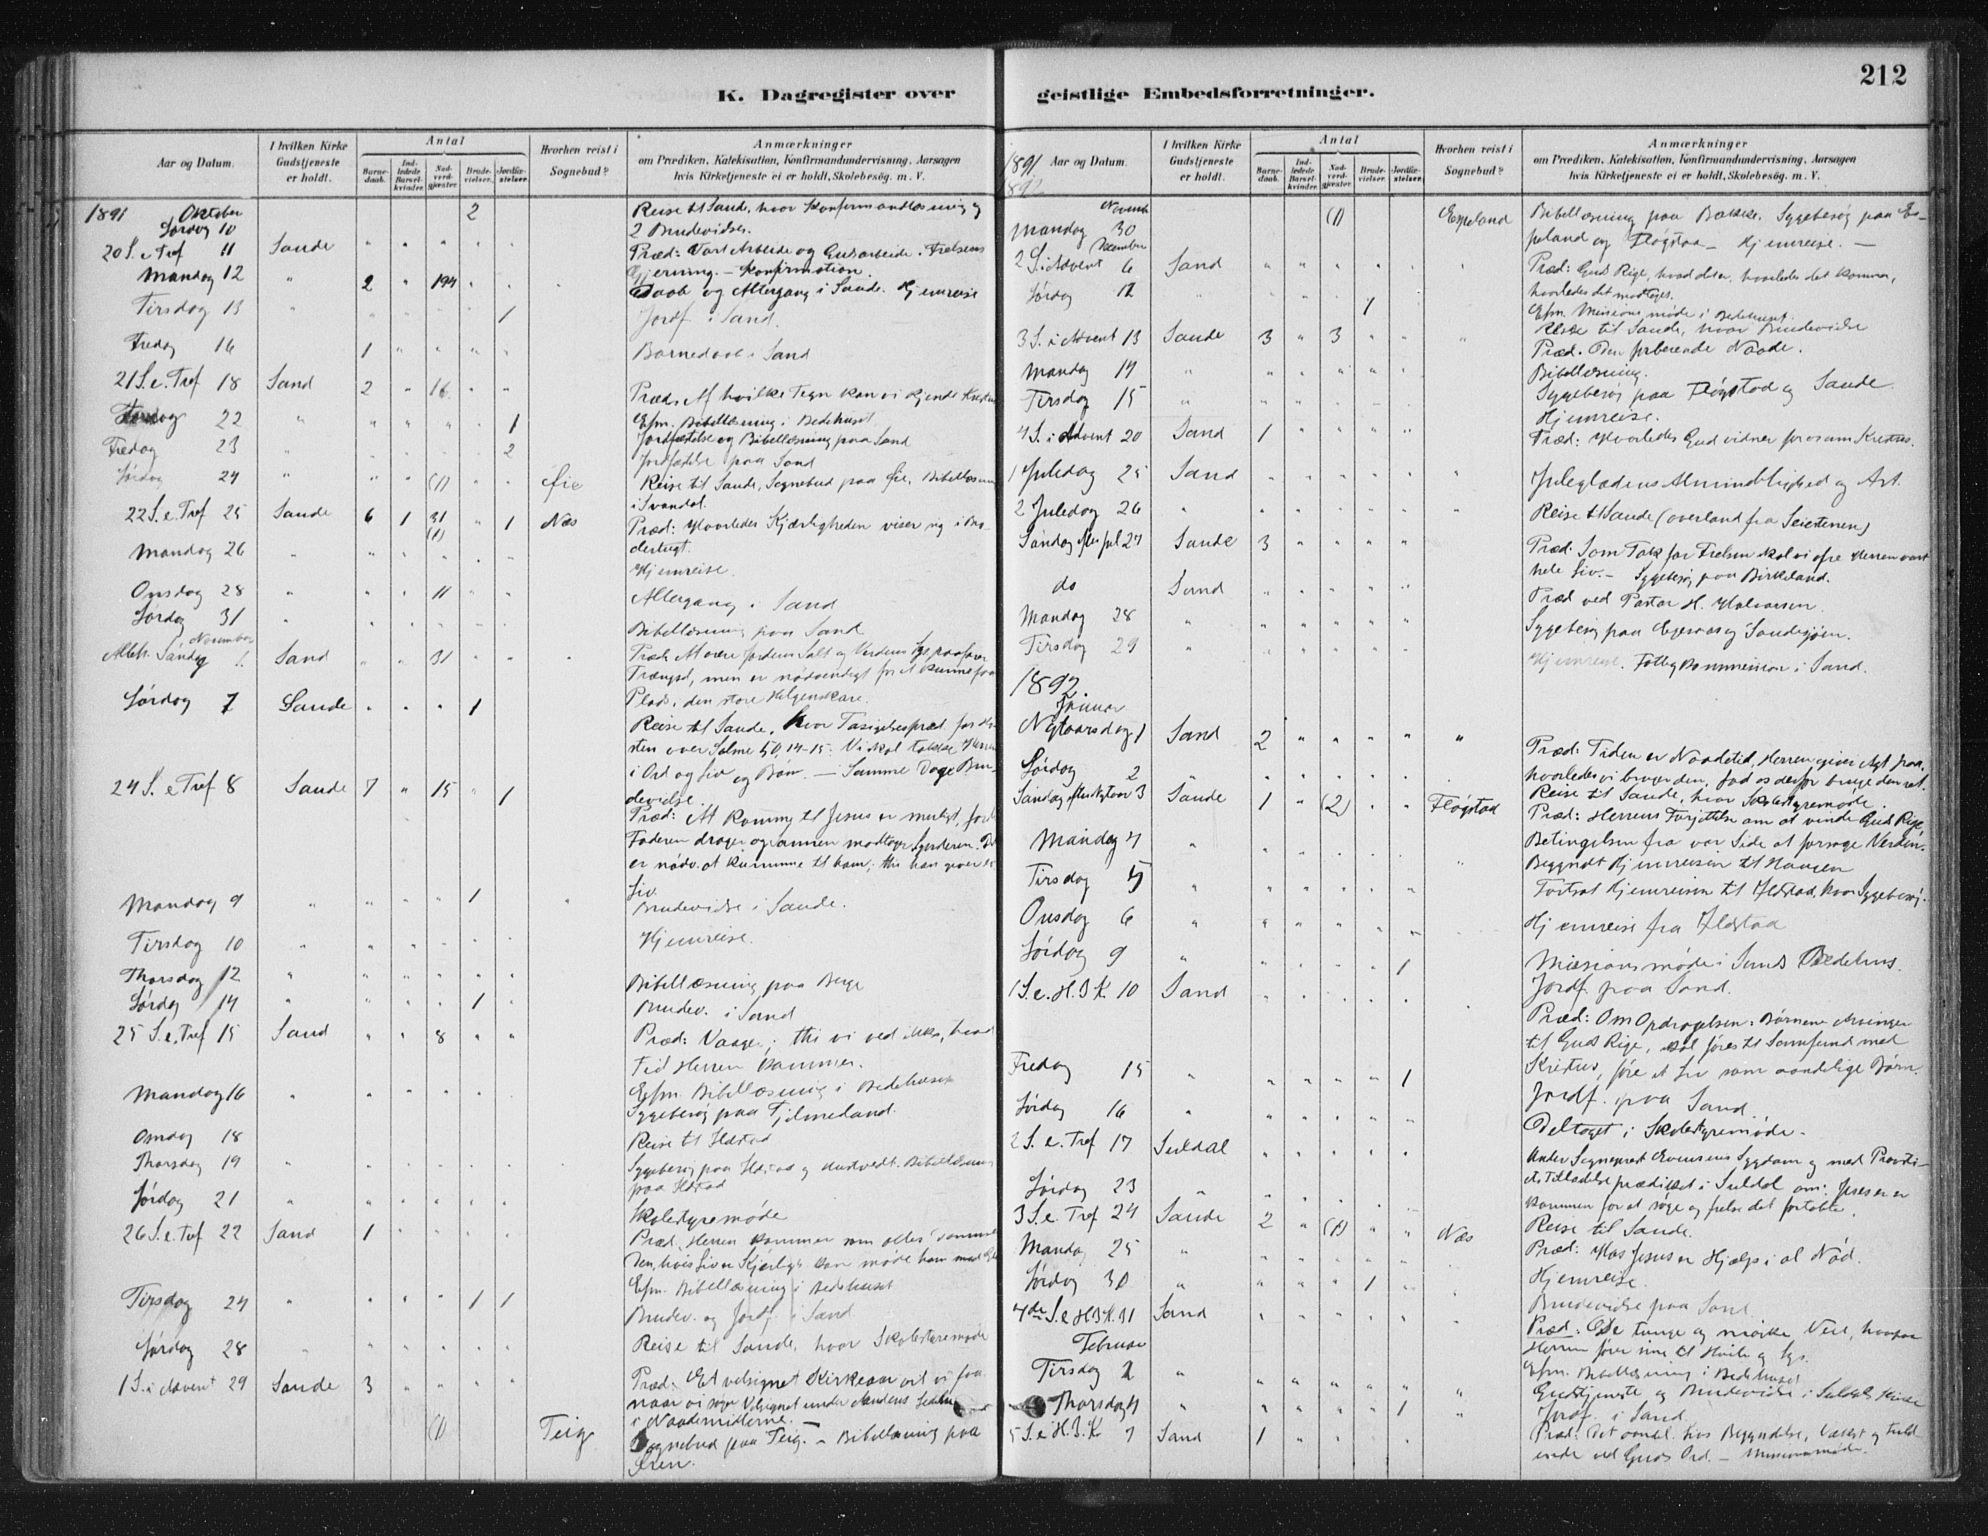 K. Dagregister over
Aar og Datum.
I hvilken Kirke Gudstjeneste er holdt.
Antal
Barne-daab.
Ind-ledede Barsel-kvinder.
Nad-verd-gjæster.
Brude-vielser.
Jordfæ-stelser.
Hvorhen reist i Sognebud?
Anmærkninger
om Prædiken, Katekisation, Konfirmandundervisning, Aarsagen
hvis Kirketjeneste ei er holdt, Skolebesøg. m. V.
1891 Oktober
Lørdag 10 2 Reise til Sande, hvor Konfirmandlæsning og
2 Brudevidser.
20 S. e Tref 11 Sande " " " " " Præd: Vort Arbeide og Guds arbeide i Frelsens
Gjerning. – Konfirmation.
Mandag 12 " 2 " 194 " " Daab og Altergang i Sande. Hjemreise
Tirsdag 13 " " " " " 1 Jordf. i Sand.
Fredag 16 1 " " " " Barnedaab i Sand
21 S. e. Tref 18 Sand 2 " 16 " " Præd. Af hvilke Tegn kan vi kjende
Efm. Bibellæsning i Bedehuset
22 " " " " " 1 Jordfæstelse og Bibellæsning paa Sand
Fredag 23 " " " " " 2 Jordfæstelse paa Sand
Lørdag 24 " " " (1) " " Øie Reise til Sande, Sognebud paa Øie, Bibellæsning
i Svandal.
22 S. e. Tref 25 Sande 6 1 31 (1) " 1 Næs Præd: Hvorledes Kjærligheden viser sig i
Mandag 26 " " " " " " Hjemreise.
Onsdag 28 " " " 11 " " Altergang i Sand
Lørdag 31 " " " " " " Bibellæsning paa Sand
November
Alleh. Søndag 1 Sand " " 31 " " Præd: At være Jordens Salt og Verdens Lys
Trængsel, men er nødvendigt for at kunne faa
Plads i den store Helgenskare.
Lørdag 7 Sande " " " 1 Reise til Sande, hvor
over Salme 50, 14-15: Vi skal takke Herren
i Ord og Liv og Bøn. – Samme Dag Bru-
devidse.
24 S. e Tref 8 Sande 7 " 15 " 1 Præd: At komme til Jesus er muligt, fordi
Faderen drager og Sønnen modtager Synderen. Det
er nødv. at komme til ham; thi han giver os
Liv
Mandag 9 " " " " 1 " Brudevidse i Sande.
Tirsdag 10 " " " " " " Hjemreise.
Thorsdag 12 " " " " " " Bibellæsning paa Berge
Lørdag 14 " " " " 1 " Brudev. i Sand
25 S. e. Tref 15 Sand " " 8 " " Præd: Vaager; thi vi ved ikke, hvad
Tid Herren kommer.
Efm. Bibellæsning i Bedehuset
Mandag 16 " " " " " " Sygebesøg paa Tjelmeland.
Onsdag 18 Reise til Ilstad
Thorsdag 19 " Sygebesøg paa Ilstad og Bibellæsning
paa Ilstad
Lørdag 21 " " " " " " Skolestyremøde
26 S. e. Tref 22 Sand 1 " " " " Præd. Herren kommer som alles
Den, hvis Liv er Kjærlighed kan møde ham med
Efm. Bibellæsning i Bedehuset
Tirsdag 24 " " " " 1 1 Brudev. og Jordf. i Sand
Lørdag 28 " " " " " " Reise til Sande, hvor Skolestyremøde
1 S. i Advent 29 Sande 3 " " " " Præd. Et velsignet Kirkeaar vil vi faa
naar vi søger Velsignelse under Aandens
i Naademidlerne. –
(1) Teig Sognebud paa Teig. – Bibellæsning paa
Øren.
212
geistlige Embedsforretninger.
1891
1892
Aar og Datum.
I hvilken Kirke Gudstjeneste er holdt.
Antal
Barne-daab.
Ind-ledede Barsel-kvinder.
Nad-verd-gjæster.
Brude-vielser.
Jordfæ-stelser.
Hvorhen reist i Sognebud?
Anmærkninger
om Prædiken, Katekisation, Konfirmandundervisning, Aarsagen
hvis Kirketjeneste ei er holdt, Skolebesøg. m. V.
Novemb
Mandag 30 (1) Espeland Bibellæsning paa Bakke. Sygebesøg paa Es-
peland og Fløgstad – Hjemreise. –
December
2 S. i Advent 6 Sand " " " " " " Præd: Guds Rige, hvad det er, hvorledes det kommer,
hvorledes det modtages.
Efm. Missionsmøde i Bedehuset.
Lørdag 12 " " " " 1 Reise til Sande, hvor Brudevidse
3 S. i Advent 13 Sande 3 " 3 " " " Præd. Den forberedende Naade.
Mandag 14 " " " " " " Bibellæsning.
Tirsdag 15 " Sygebesøg paa Fløgstad og Sande.
Hjemreise.
4 S. i Advent 20 Sand 1 " " " " Præd: Hvorledes Gud vidner for os om Kristus.
1 Juledag 25 Sand " " " " " " Juleglædens Almindelighed og Art.
2 Juledag 26 " " " " " " Reise til Sande (overland fra Seiersteinen)
Søndag efter Jul 27 Sande 3 " " " " Præd. Som Tak for Frelsen skal vi ofre Herren vort
hele Liv. – Sygebesøg paa Birkeland.
do Sand " " " " " Præd ved Pastor H. Halvorsen.
Mandag 28 " " " " " " Sygebesøg paa og Sandesjøen.
Tirsdag 29 " " " " " " Hjemreise. i Sand.
1892
Januar
Nytaarsdag 1 Sand 2 " " " " " Præd: Tiden er Naadetid, Herren giver Agt paa,
hvorledes vi bruger den, lad os derfor bruge den ret.
Lørdag 2 " " " " " " Reise til Sande, hvor Skolestyremøde.
Søndag efter Nytaar 3 Sande 1 " (2) " " Fløgstad Præd: Herrens Forjettelse om at vinde Guds Rige,
Betingelsen fra vor Side at forsage Verden.
Mandag 4 " " " " " " Begyndt Hjemreisen til Haugen
Tirsdag 5 " " " " " " Fortsat Hjemreisen til Ilstad, hvor Sygebesøg.
Onsdag 6 " " " " " " Hjemreise fra Ilstad
Lørdag 9 " " " " " 1 Missionsmøde i Sands Bedehus.
Jordf. paa Sand.
1 S. e. H. 3 K. 10 Sand " " " " " " Præd: Om Opdragelsen: Børnene Arvinger
til Guds Rige, skal føres til Samfund med
Kristus, føre et Liv som aandelige Børn.
Fredag 15 " " " " " 1 Jordf. paa Sand.
Lørdag 16 " " " " " " Deltaget i Skolestyremøde.
2 S. e. Tref 17 Suldal " " " " " Under Sognepræst Evensens Sygdom og med Provsti-
ets Tilladelse prædiket i Suldal om: Jesus er
kommen for at søge og frelse det fortabte.
Lørdag 23 " " " " " " Reise til Sande.
3 S. e. Tref 24 Sande 2 " (1) " " Næs Præd: Hos Jesus er Hjælp i al Nød.
Mandag 25 " " " " " " Hjemreise.
Lørdag 30 " " " " 1 " Brudevidse paa Sand
4de S. e H. 3 K. 31 Sand " " " " " " Præd: De tunge og mørke Veie, hvorpaa
Herren fører sine til Hvile og Lys.
Efm. Bibellæsning i Bedehuset
Februar
Tirsdag 2 " " " " " " " Gudstjeneste og Brudevidse i Suldals Kirke
Thorsdag 4 " " " " " 1 " Jordf. i Sand
5 S. e H. 3 K. 7 Sand 1 " " " " Præd: Det aandl. Livs Begyndelse, Vækst og Fuld-
ende ved Guds Ord. – Missionsmøde.